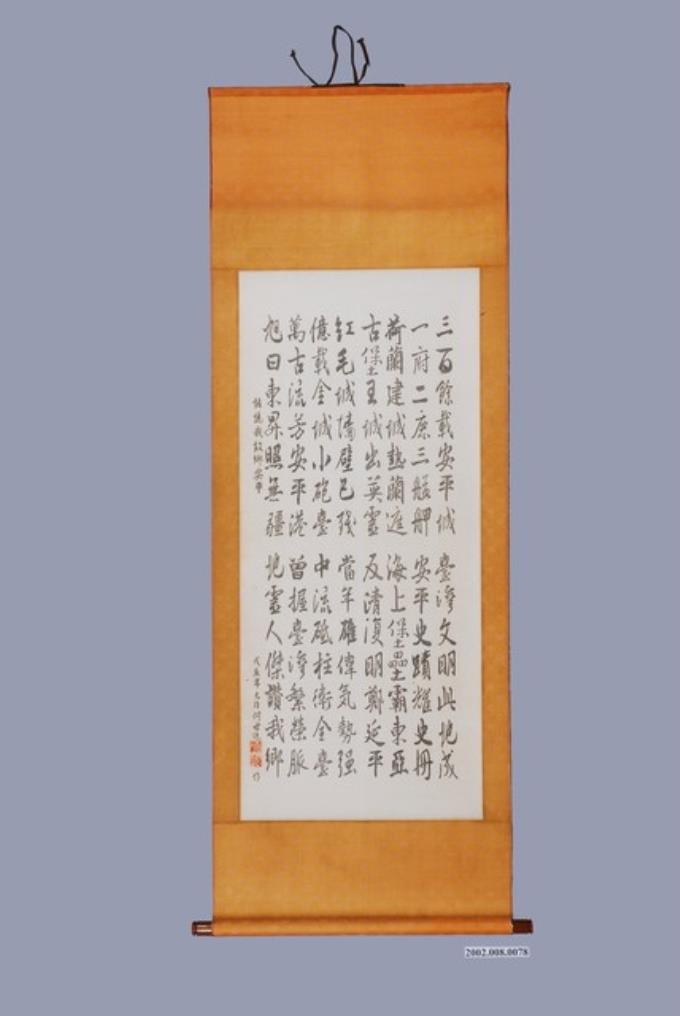 三百餘載安平城 臺灣文明此地成
一府二鹿三艋舺 安平史蹟耀史冊
荷蘭建城熱蘭遮 海上堡壘霸東亞
古堡王城出英靈 反清復明鄭延平
紅毛城墻壁已殘 當年雄偉氣勢强
億載金城小砲臺 中流砥柱衛全臺
萬古流芳安平港 曾握臺灣繁榮脈
旭日東昇照無疆 地靈人傑讚我鄉
我故鄉安平
戊 年 何世 作
2002.008.0078